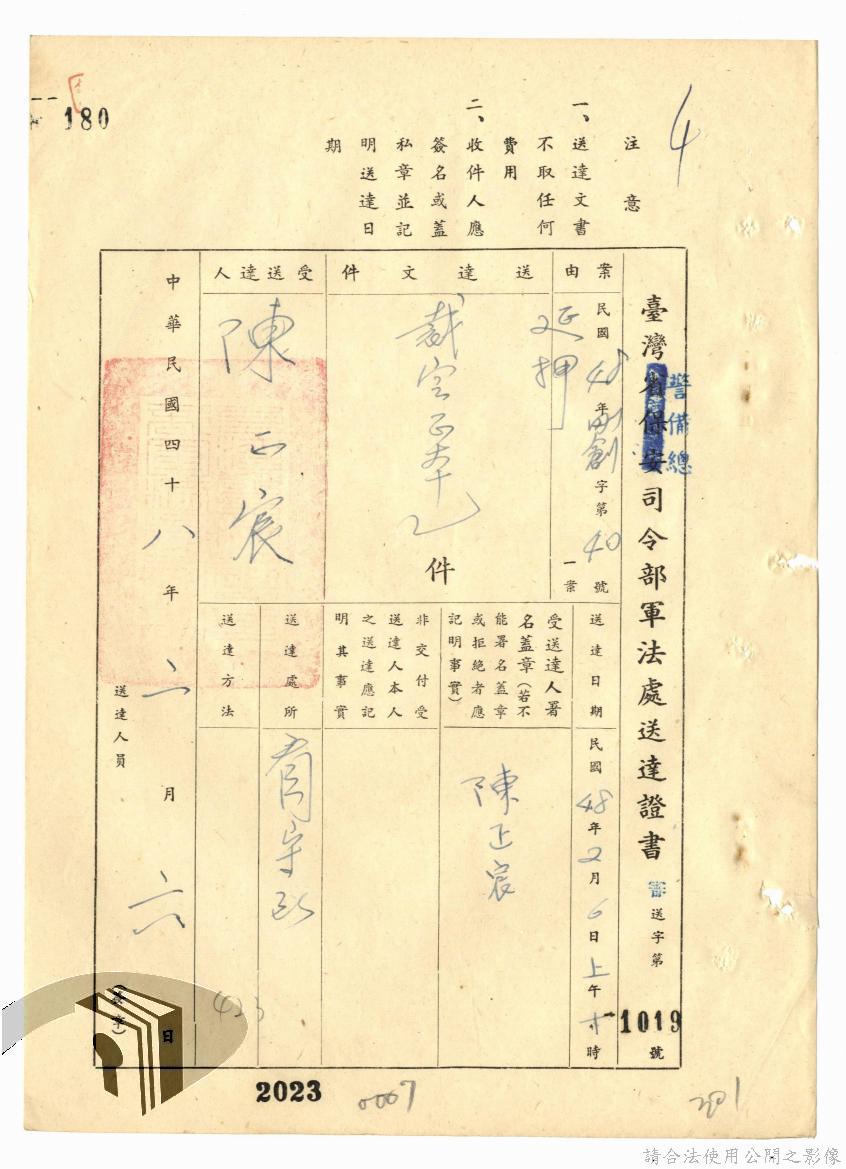 180
4
注意
一、送達文書
不取任何
費用
二、收件人應
簽名或蓋
私章並記
明送達日
期
臺灣省保安司令部軍法處送達證書
警備總
審送字第
1019
號
案由
民國48年
字第40號
一案
延押
送達文件
裁定正本乙
件
受送達人
陳正宸
送達日期
民國48年2月6日上午十時
受送達人署
名蓋章(若不
能署名蓋章
或拒絕者應
記明事實)
陳正宸
非交付受
送達人本人
之送達應記
明其事實
送達處所
看守所
送達方法
中華民國四十八年二月六日
送達人員
2023
0007
201
請合法使用公開之影像